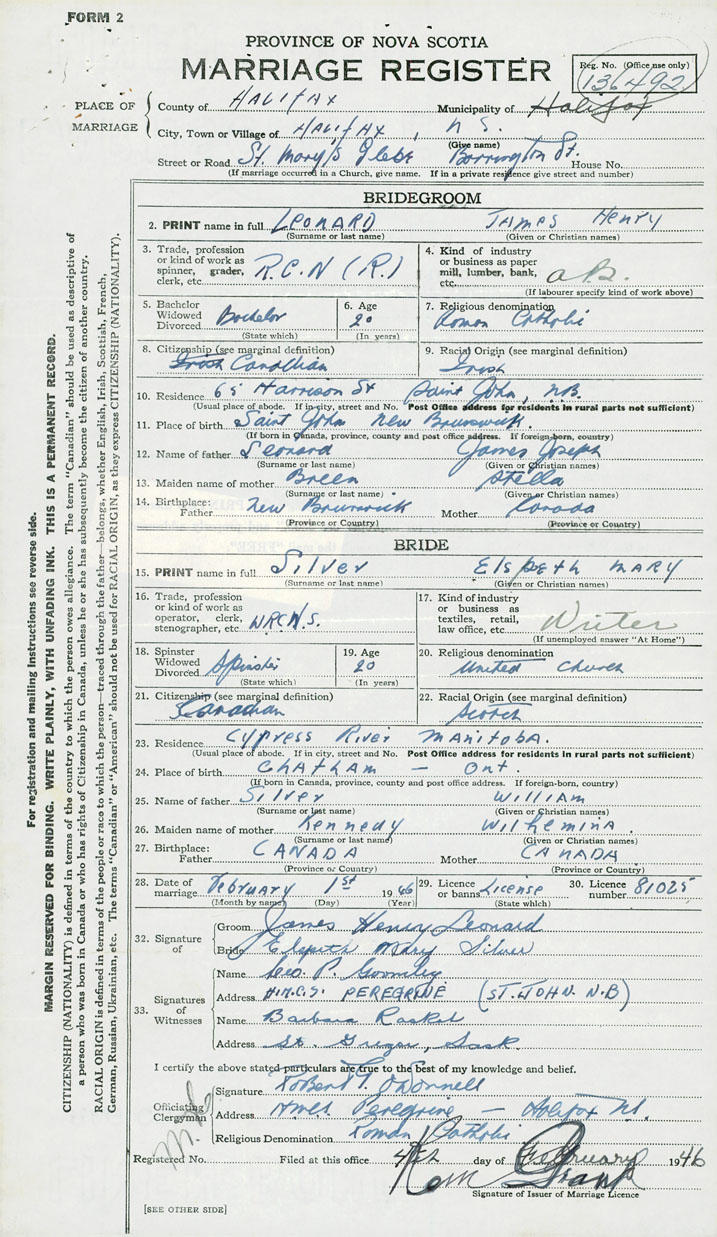 FORM 2
PROVINCE OF NOVA SCOTIA
MARRIAGE REGISTER
Reg. No. (Office use only)
136492
PLACE OF MARRIAGE
County of HALIFAX Municipality of Halifax
City, Town or Village of HALIFAX, N.S.
(Give name)
Street or Road St. Mary's Glebe Barrington St. House No.
(If marriage occurred in a Church, give name. If in a private residence give street and number)
BRIDEGROOM
2. PRINT name in full LEONARD JAMES HENRY
(Surname or last name) (Given or Christian names)
3. Trade, profession or kind of work as spinner, grader, clerk, etc. R.C.N (R.)
4. Kind of industry or business as paper mill, lumber, bank, etc. a.B.
(If labourer specify kind of work above)
5. Bachelor Widowed Divorced Bachelor
(State which)
6. Age 20
(In years)
7. Religious denomination
Roman Catholic
8. Citizenship (see marginal definition)
Irish Canadian
9. Racial Origin (see marginal definition)
Irish
10. Residence 65 Harrison St Saint John, N.B.
(Usual place of abode. If in city, street and No. Post Office address for residents in rural parts not sufficient)
11. Place of birth Saint John New Brunswick.
(If born in Canada, province, county and post office address. If foreign-born, country)
12. Name of father Leonard James Joseph
(Surname or last name) (Given or Christian names)
13. Maiden name of mother Breen Stella
(Surname or last name) (Given or Christian names)
14. Birthplace: Father New Brunswick Mother Canada
(Province or Country) (Province or Country)
BRIDE
15. PRINT name in full Silver ELSPETH MARY
(Surname or last name) (Given or Christian names)
16. Trade, profession or kind of work as operator, clerk, stenographer, etc. W.R.C.N.S.
17. Kind of industry or business as textiles, retail, law office, etc. Writer
(If unemployed answer "At Home")
18. Spinster Widowed Divorced Spinster
(State which)
19. Age 20
(In years)
20. Religious denomination
United Church
21. Citizenship (see marginal definition)
Canadian
22. Racial Origin (see marginal definition)
Scotch
23. Residence Cypress River Manitoba.
(Usual place of abode. If in city, street and No. Post Office address for residents in rural parts not sufficient)
24. Place of birth CHATHAM - Ont.
(If born in Canada, province, county and post office address. If foreign-born, country)
25. Name of father Silver WILLIAM
(Surname or last name) (Given or Christian names)
26. Maiden name of mother Kennedy Wilhemina.
(Surname or last name) (Given or Christian names)
27. Birthplace: Father CANADA Mother CANADA
(Province or Country) (Province or Country)
28. Date of marriage February 1st 1946
(Month by name) (Day) (Year)
29. Licence or banns License
(State which)
30. Licence number 81025
32. Signature of
Groom James Henry Leonard
Bride Elspeth Mary Silver
33. Signatures of Witnesses
Name Geo. P.
Address H.M.C.S. PEREGRINE (ST. JOHN. N.B)
Name Barbara
Address St. Gregor, Sask.
I certify the above stated particulars are true to the best of my knowledge and belief.
Officiating Clergyman
Signature Robert T. O'Donnell
Address HMCS Peregrine - Halifax N.S.
Religious Denomination Roman Catholic
Registered No. Filed at this office 4th day of February 1946
Signature of Issuer of Marriage Licence
[SEE OTHER SIDE]
For registration and mailing instructions see reverse side.
MARGIN RESERVED FOR BINDING. WRITE PLAINLY, WITH UNFADING INK. THIS IS A PERMANENT RECORD.
CITIZENSHIP (NATIONALITY) is defined in terms of the country to which the person owes allegiance. The term "Canadian" should be used as descriptive of
a person who was born in Canada or who has rights of Citizenship in Canada, unless he or she has subsequently become the citizen of another country.
RACIAL ORIGIN is defined in terms of the people or race to which the person—traced through the father—belongs, whether English, Irish, Scottish, French,
German, Russian, Ukrainian, etc. The terms "Canadian" or "American" should not be used for RACIAL ORIGIN, as they express CITIZENSHIP (NATIONALITY).